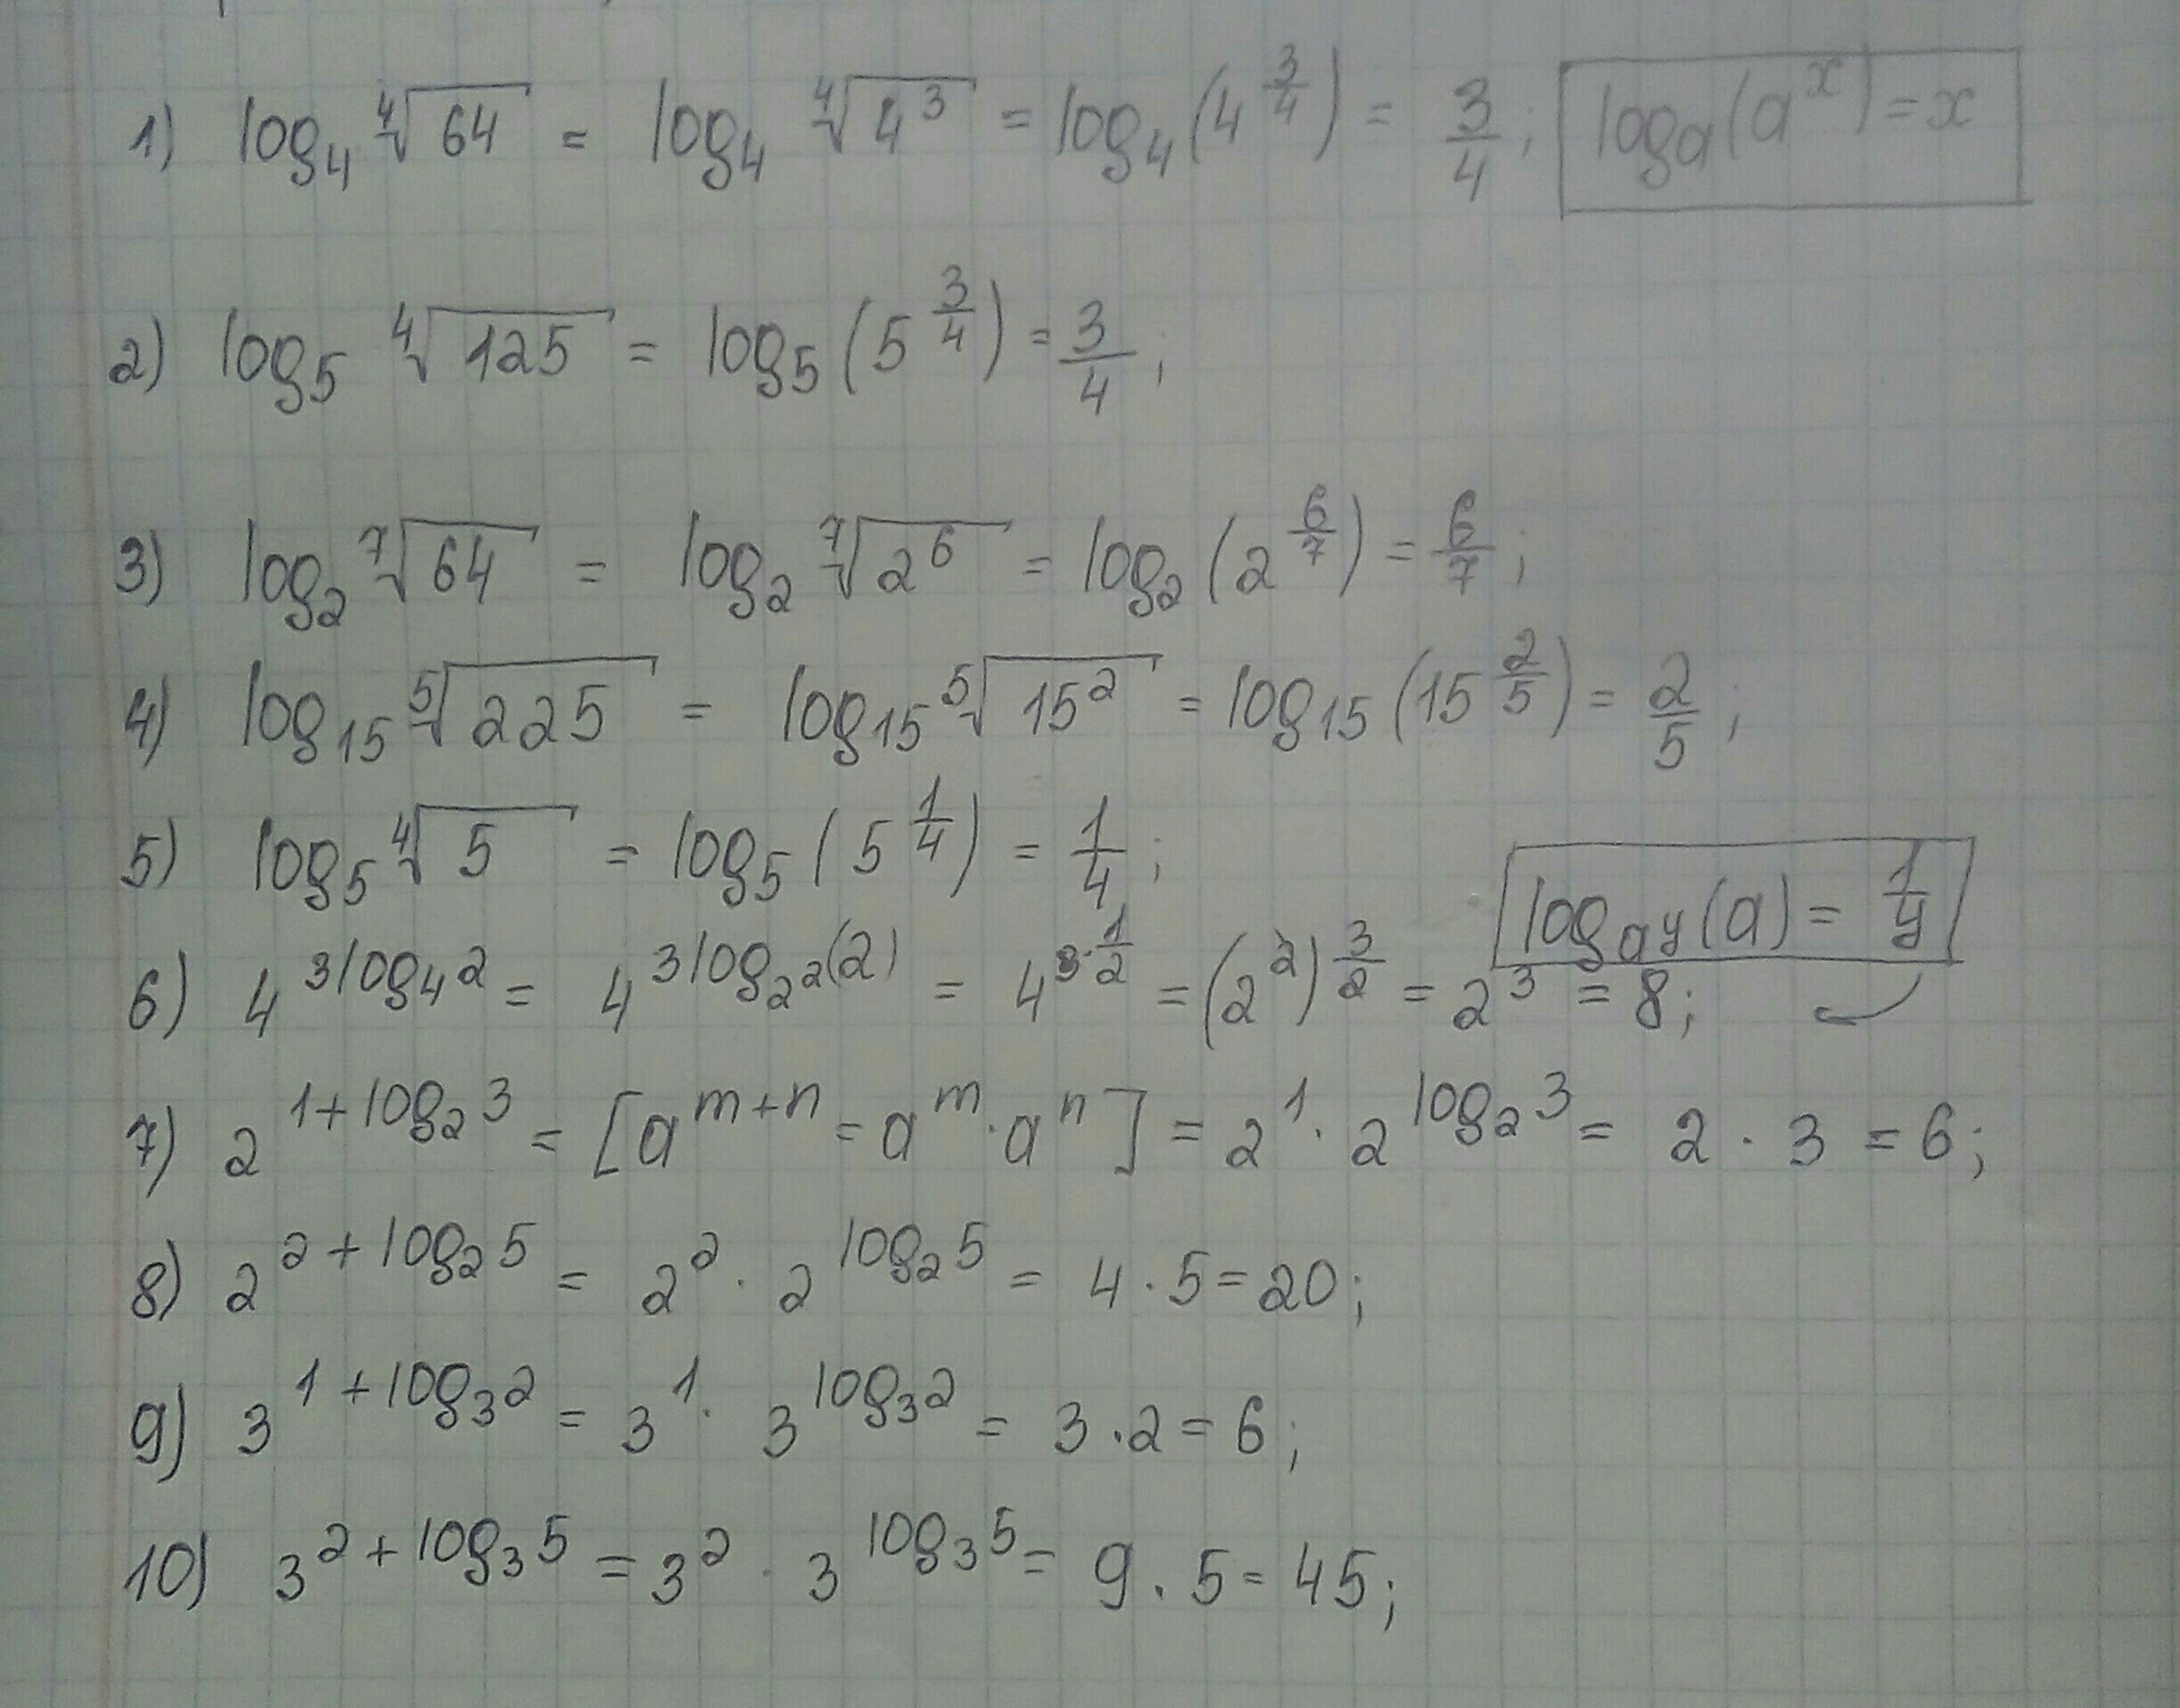 1) log₄ ⁴√64 = log₄ ⁴√4³ = log₄(4^(3/4)) = 3/4; logₐ(a^x) = x
2) log₅ ⁴√125 = log₅(5^(3/4)) = 3/4;
3) log₂ ⁷√64 = log₂ ⁷√2⁶ = log₂(2^(6/7)) = 6/7;
4) log₁₅ ⁵√225 = log₁₅ ⁵√15² = log₁₅(15^(2/5)) = 2/5;
5) log₅ ⁴√5 = log₅(5^(1/4)) = 1/4; log_(a^y)(a) = 1/y
6) 4^(3log₄2) = 4^(3log_(2²)(2)) = 4^(3·1/2) = (2²)^(3/2) = 2³ = 8;
7) 2^(1+log₂3) = [a^(m+n) = a^m · a^n] = 2¹ · 2^(log₂3) = 2 · 3 = 6;
8) 2^(2+log₂5) = 2² · 2^(log₂5) = 4 · 5 = 20;
9) 3^(1+log₃2) = 3¹ · 3^(log₃2) = 3 · 2 = 6;
10) 3^(2+log₃5) = 3² · 3^(log₃5) = 9 · 5 = 45;